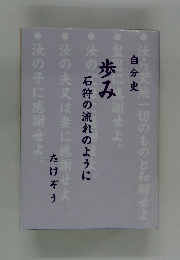 自分史
歩み
石狩の流れのように
たけぞう
一切のものと和解せよ
謝せよ。
汝の
汝の夫又は妻に感謝せよ。
汝の子に感謝せよ。